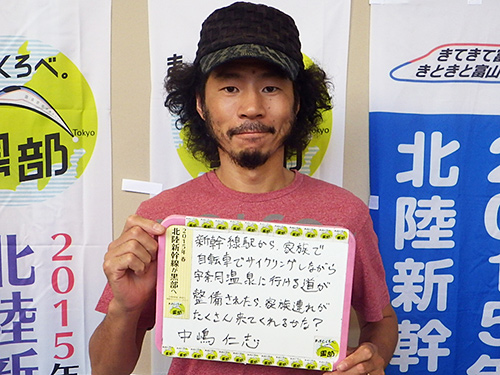 くろべ。
Tokyo
黒部
2015年
北陸新
Tokyo
きてきて富
きときと富山
2015年
北陸新幹
2015年春
北陸新幹線が黒部へ
新幹線駅から、家族で
自転車でサイクリングしながら
宇奈月温泉に行ける道が
整備されたら、家族連れが
たくさん来てくれるかな?
中嶋 仁志
黒部